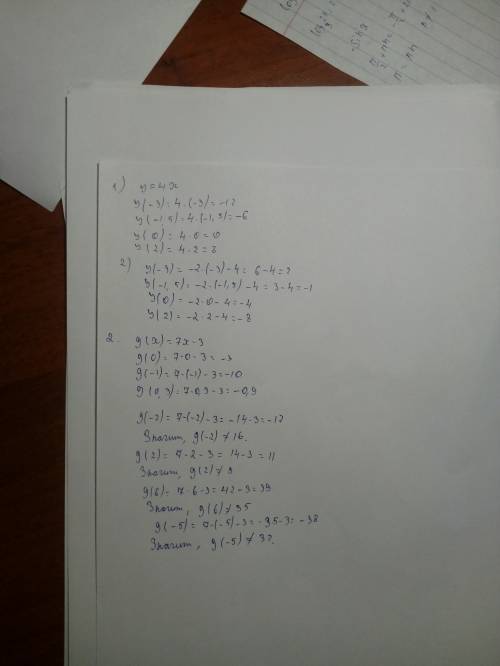 1) y = 4x
y(-3) = 4·(-3) = -12
y(-1,5) = 4·(-1,5) = -6
y(0) = 4·0 = 0
y(2) = 4·2 = 8
2) y(-3) = -2·(-3)-4 = 6-4 = 2
y(-1,5) = -2·(-1,5)-4 = 3-4 = -1
y(0) = -2·0-4 = -4
y(2) = -2·2-4 = -8
2. g(x) = 7x-3
g(0) = 7·0-3 = -3
g(-1) = 7·(-1)-3 = -10
g(0,3) = 7·0,3-3 = -0,9
g(-2) = 7·(-2)-3 = -14-3 = -17
Значит, g(-2) ≠ 16.
g(2) = 7·2-3 = 14-3 = 11
Значит, g(2) ≠ 9
g(6) = 7·6-3 = 42-3 = 39
Значит, g(6) ≠ 35
g(-5) = 7·(-5)-3 = -35-3 = -38
Значит, g(-5) ≠ 32.